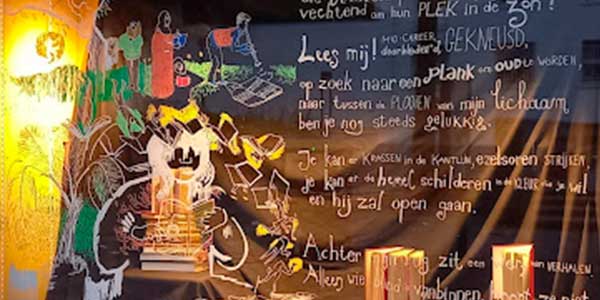 vechtend om hun PLEK in de zon!
Lees mij! MID-CAREER, GEKNEUSD,
op zoek naar een plank om OUD te WORDEN,
maar tussen de PLOOIEN van mijn lichaam
ben je nog steeds gelukkig.
Je kan er KRASSEN in de KANTLIJN, ezelsoren STRIJKEN,
je kan er de hemel schilderen in de KLEUR die je wil
en hij zal open gaan.
Achter mijn rug zit een VERHALEN.
Alleen wie blind is vanbinnen niet